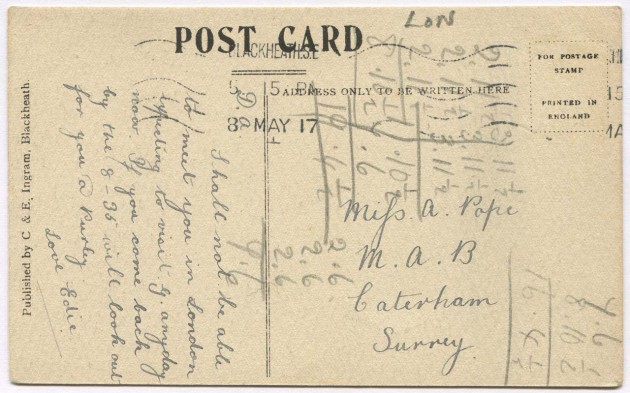 LON
POST CARD
BLACKHEATH.S.E
5 15 PM
8 MAY 17
ADDRESS ONLY TO BE WRITTEN HERE
FOR POSTAGE
STAMP
PRINTED IN
ENGLAND
Published by C & E. Ingram, Blackheath.
Shall not be able
to meet you in London
expecting to visit g. anyday
now If you come back
by the 8-35 will look out
for you a Purley
Love Edie
Miss. A. Pope
M. A. B
Caterham
Surrey.
2.6
2.6
2.6
9.6
8.10½
16.4½